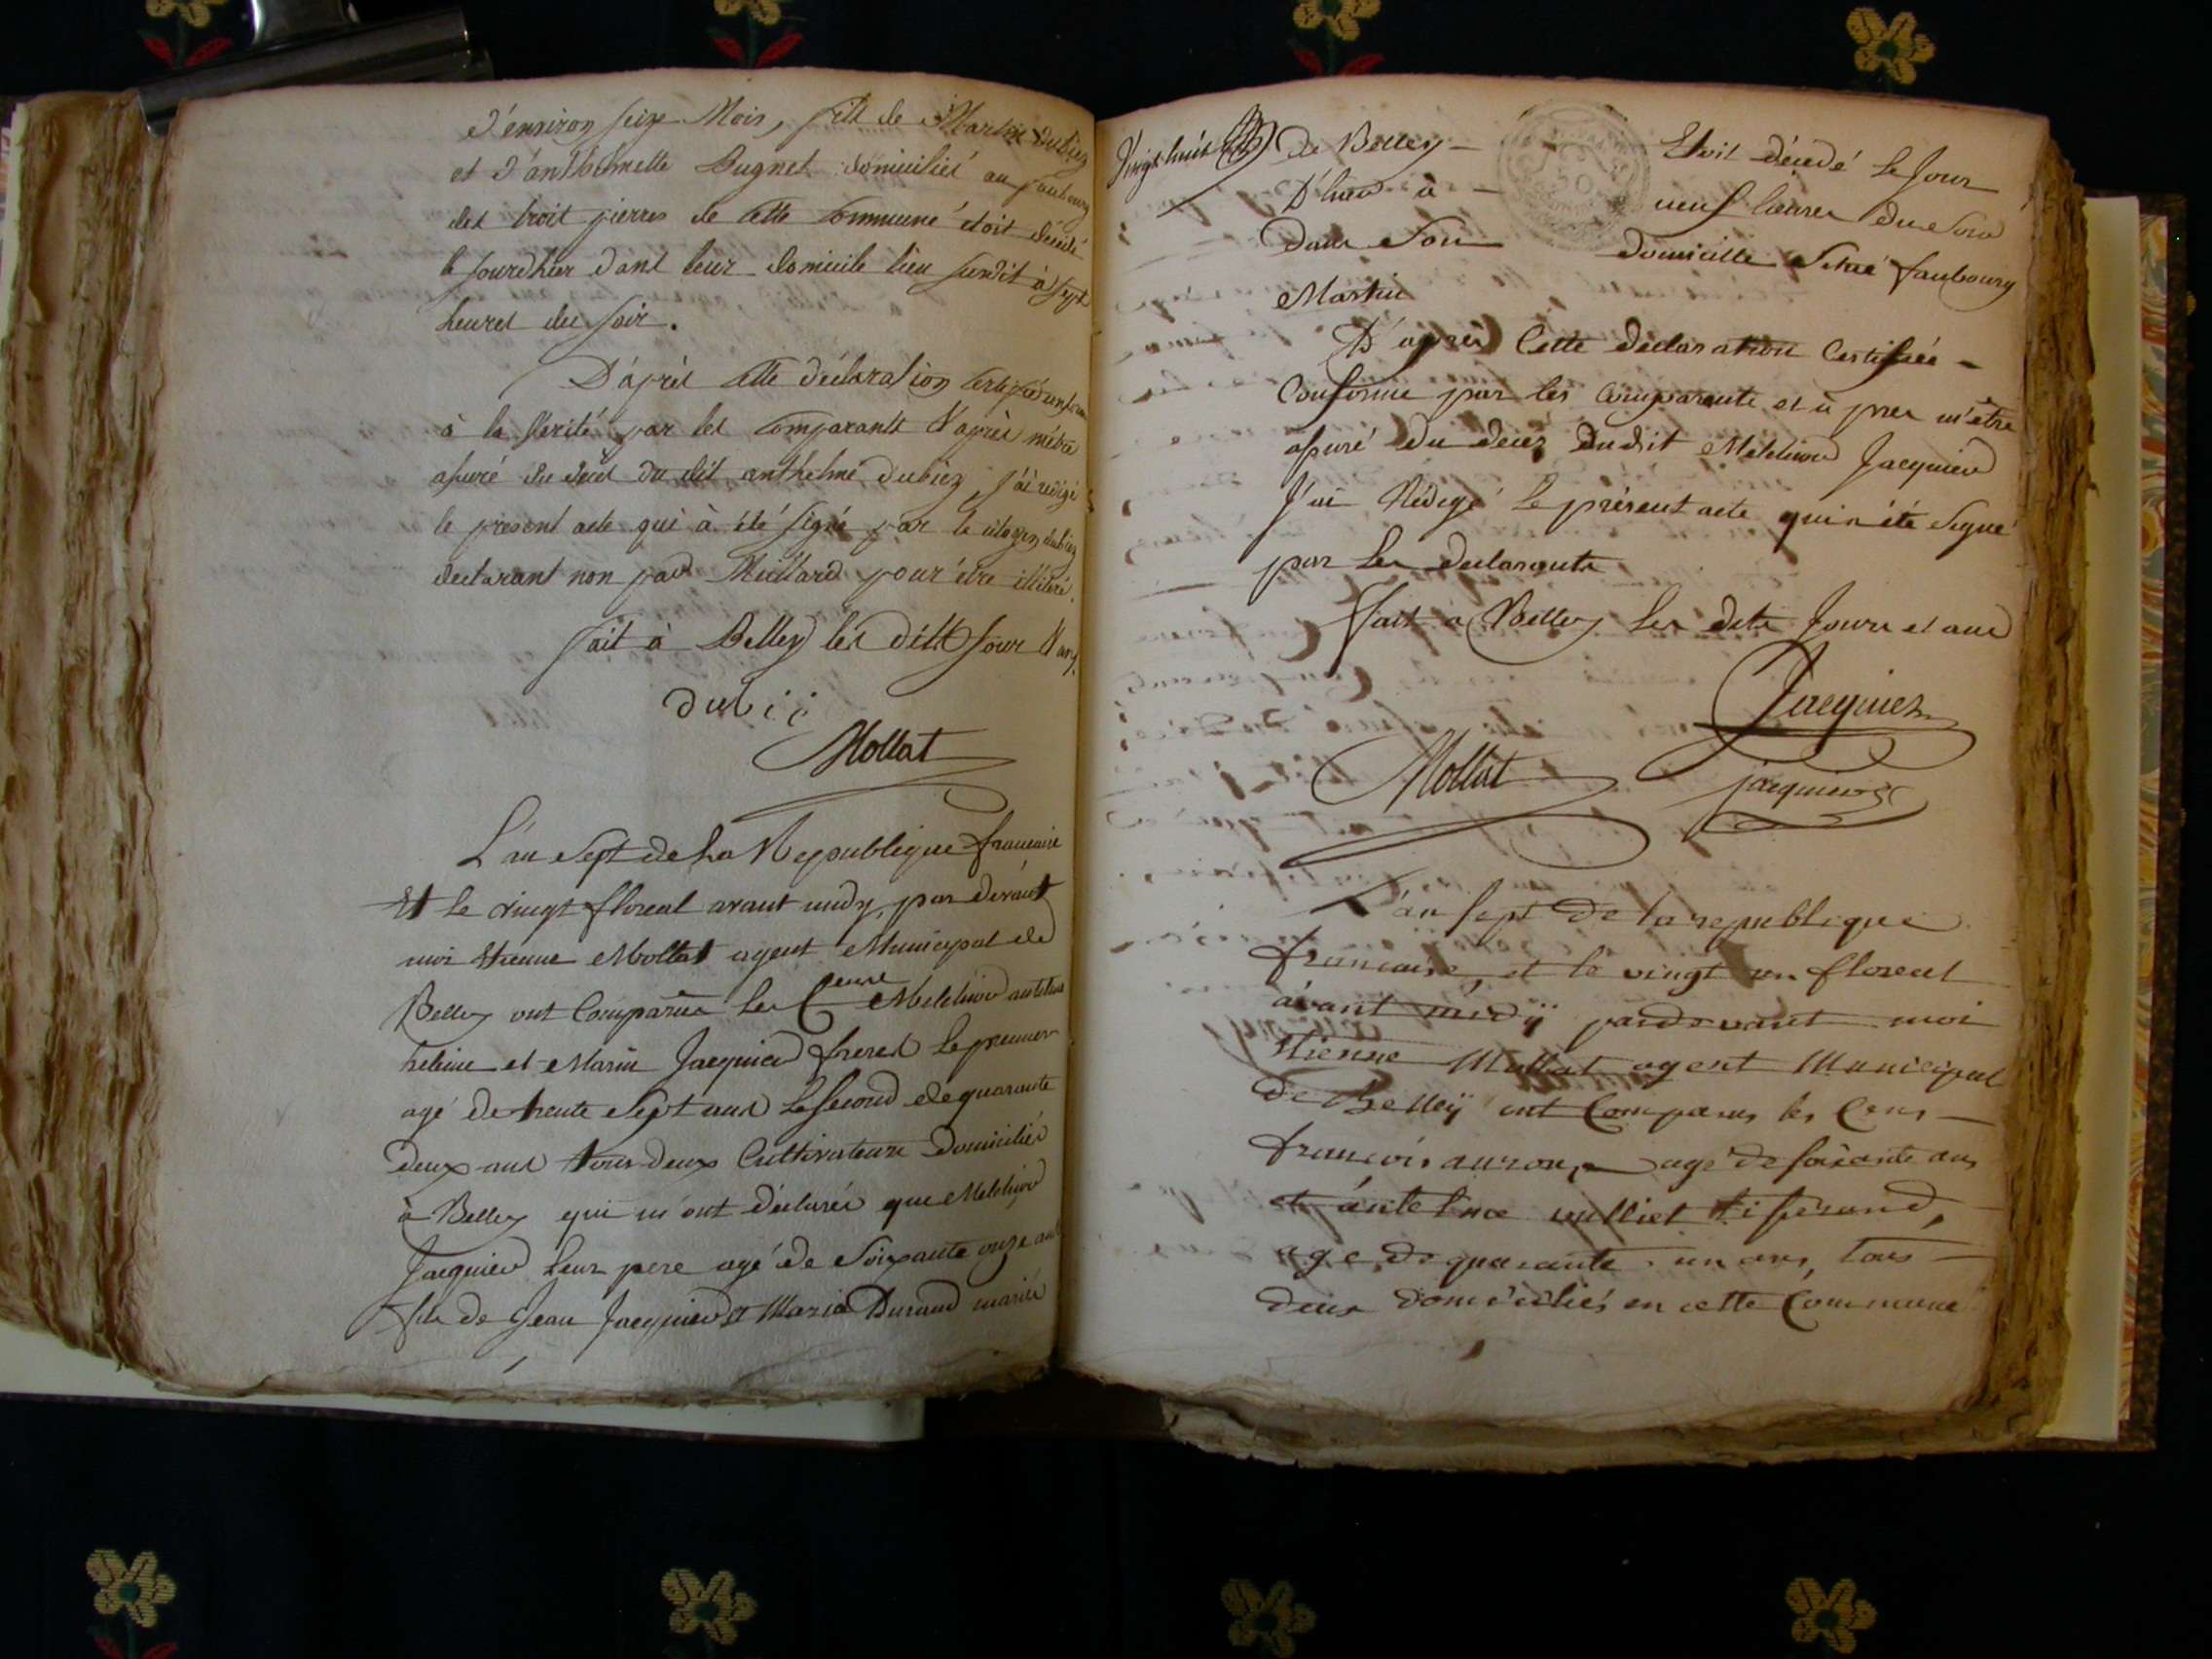 d'environ seize Mois, fils de Martin dubiez
et d'anthelmette Bugnet domiciliés au faubourg
des trois pierres de cette commune étoit décédé
le jourdhier dans leur domicile lieu susdit à sept
heures du soir.
D'après cette déclaration certifiée conforme
à la Vérité par les comparants & après m'être
assuré du décès du dit anthelme dubiez, j'ai rédigé
le present acte qui à été signé par le citoyen dubiez
declarant non pas Milliard pour être illiteré.
fait à Belley les dits jour & an.
dubii
Mollat
L'an Sept de La Republique francaise
Et le vingt floreal avant midy, par devant
moi Etienne Mollat agent Municipal de
Belley ont Comparus les Cens Melchior antel
helme et Marin Jacquier freres Le premier
agé de trente Sept ans Le second de quarante
deux ans tous deux Cultivateurs Domiciliés
à Belley qui m'ont déclarés que Melchior
Jacquier leur pere agé de Soixante onze ans
fils de Jean Jacquier et Maria Durand mariés
Vingt huit
de Belley - Etoit décédé le Jour
D'hier à - neuf heures du Soir
dans Son domicille Situé faubourg
Martin
D'après Cette declaration Certifiée -
Conforme par les Comparants et à pres m'être
assuré du deces dudit Melchior Jacquier
J'ai Rédigé le présent acte qui a été Signé
par les declarants
fait a Belley les dits Jours et ans
Jacquier
Mollat jacquier
L'an sept de la republique
francaise, et le vingt un floreal
avant midÿ pardevant moi
Etienne Mollat agent Municipal
de Belleÿ ont Comparus les Cens -
francois age de soixante ans
et antelme vulliet tisserand,
age de quarante un ans, tous
deux domiciliés en cette Commune